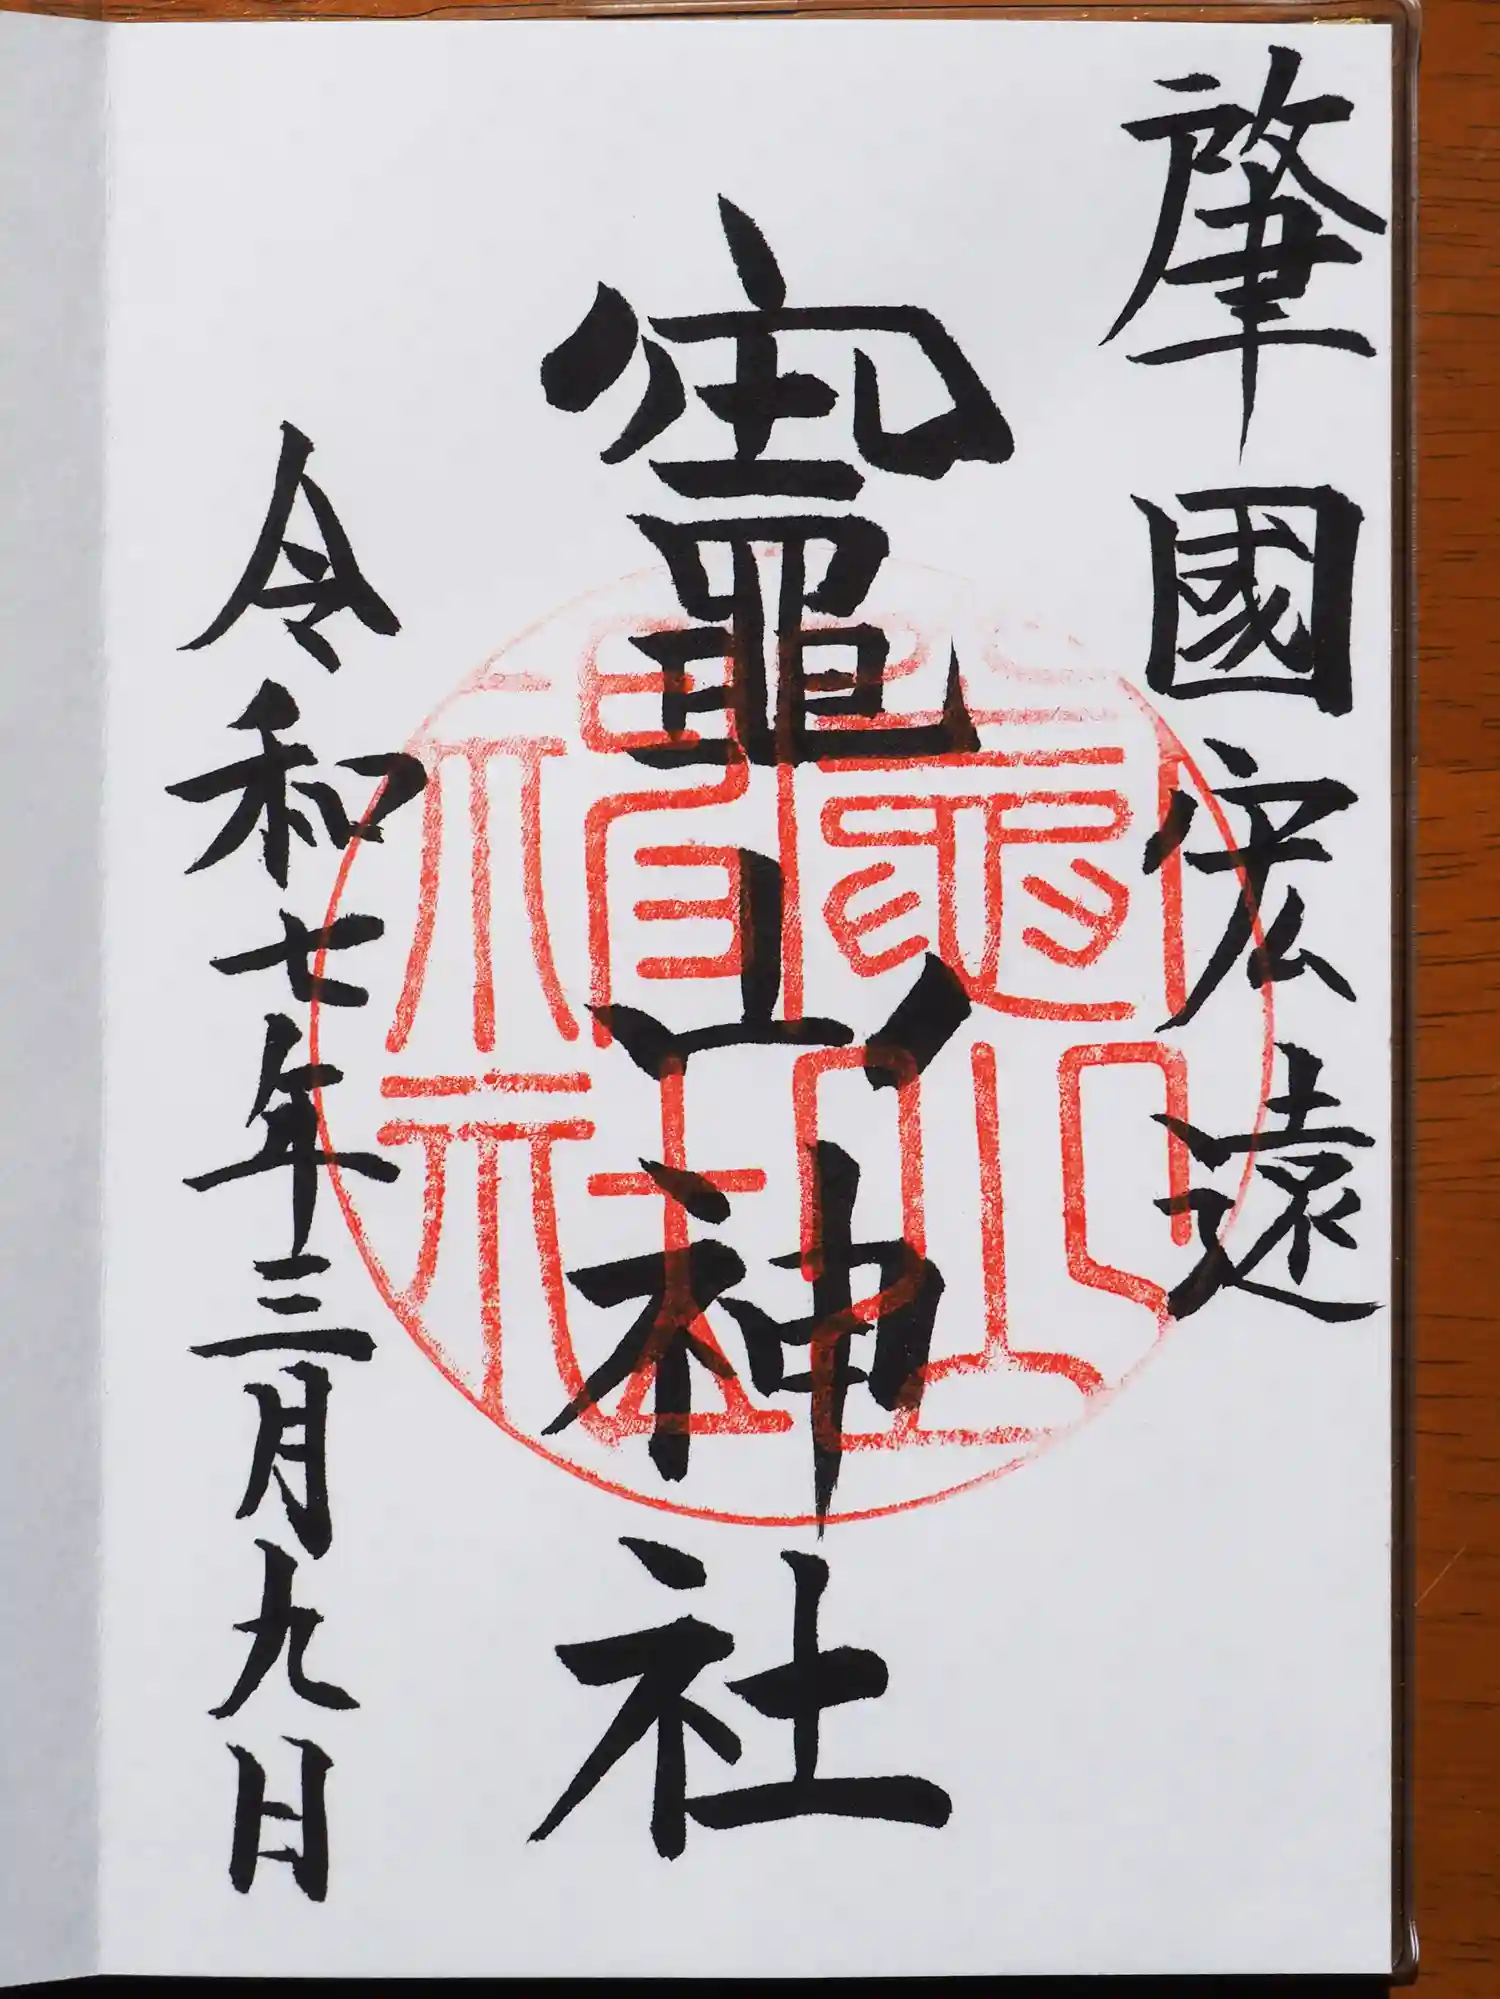 肇國宏遠
竈山神社
令和七年三月九日
竈山神社